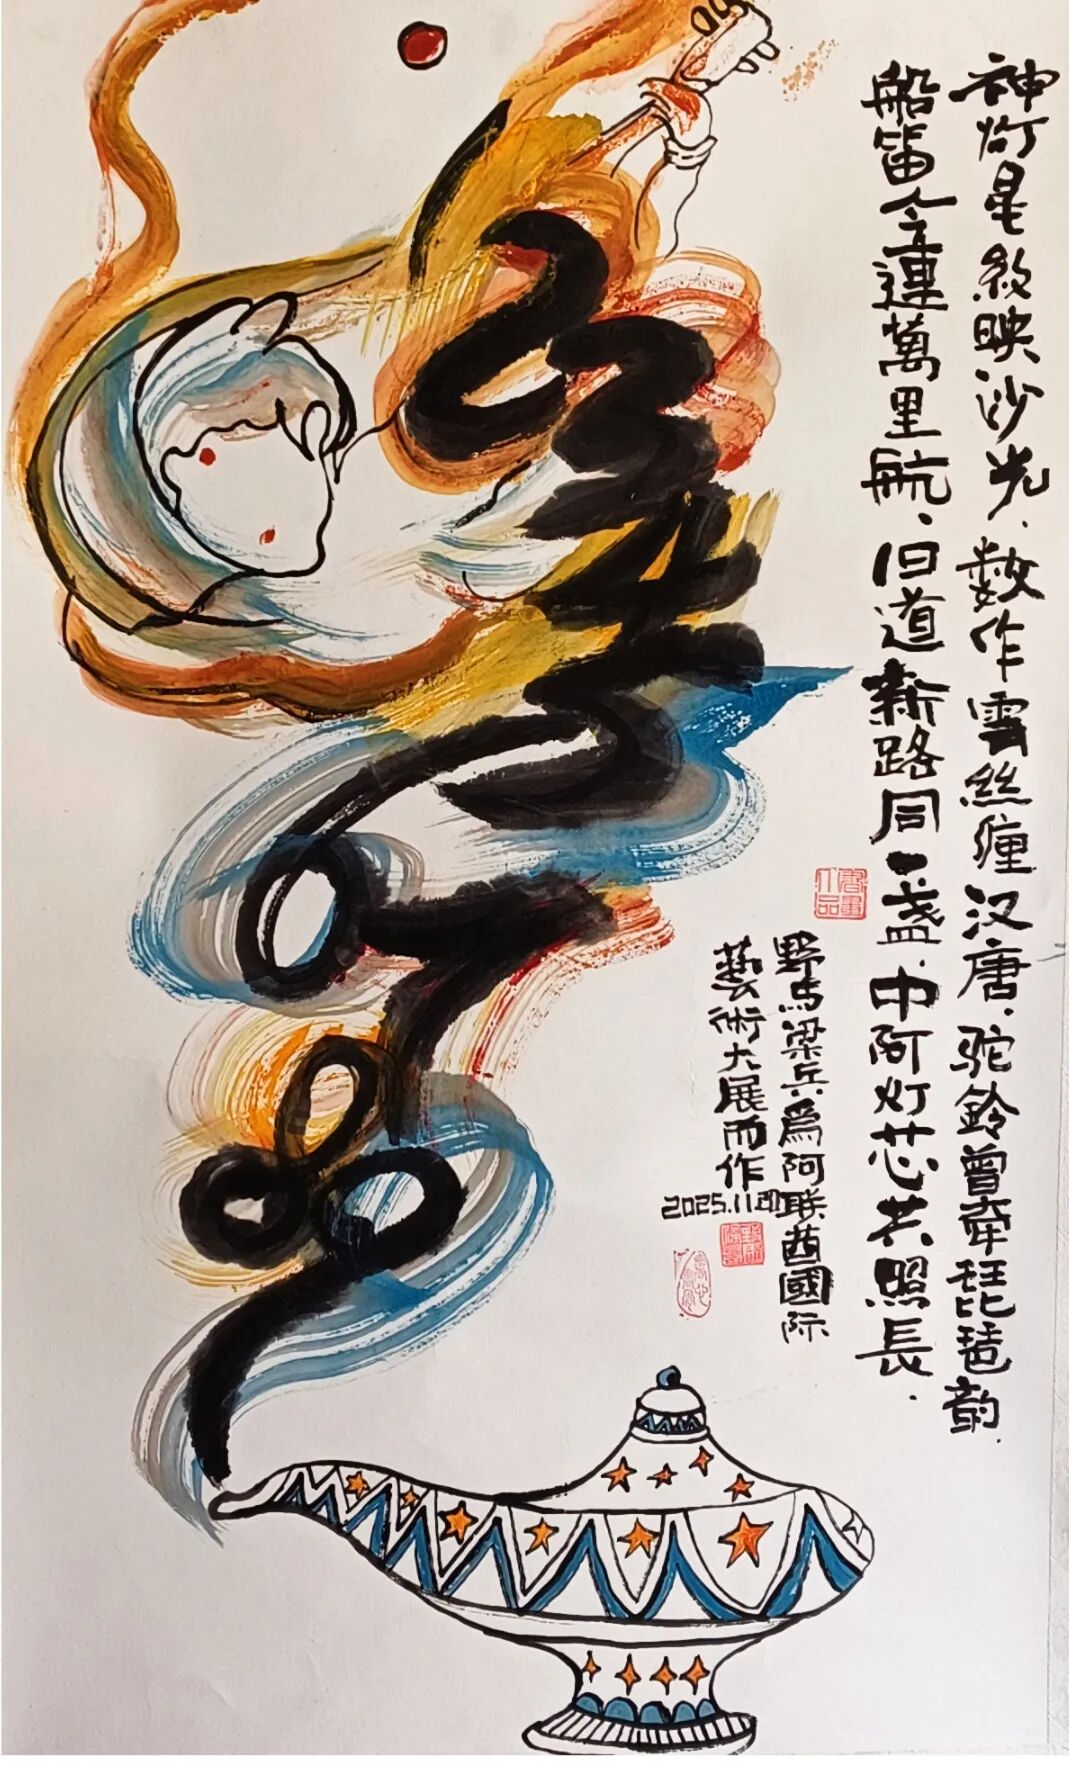 神灯星紋映沙光、数作雲絲缠汉唐、驼鈴曾牵琵琶韵.
船笛今連萬里航、旧道新路同一盏、中阿灯芯共照長.
野马梁兵爲阿联酋國际
藝術大展而作
2025.11.20